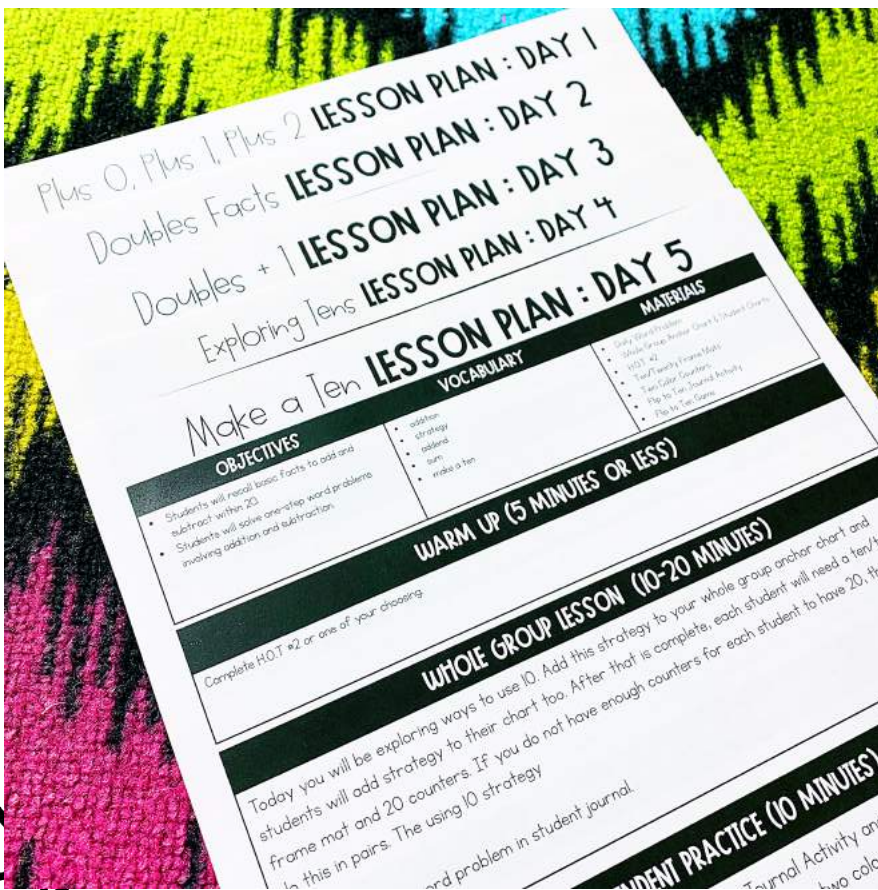 Plus 0, Plus 1, Plus 2 LESSON PLAN : DAY 1
Doubles Facts LESSON PLAN : DAY 2
Doubles + 1 LESSON PLAN : DAY 3
Exploring Tens LESSON PLAN : DAY 4
Make a Ten LESSON PLAN : DAY 5
OBJECTIVES
• Students will recall basic facts to add and
subtract within 20.
• Students will solve one-step word problems
involving addition and subtraction.
VOCABULARY
• addition
• strategy
• addend
• sum
• make a ten
MATERIALS
• Daily Word Problem
• Whole Group Anchor Chart & Student Charts
• H.O.T #2
• Ten/Twenty Frame Mats
• Two Color Counters
• Flip to Ten Journal Activity
• Flip to Ten Game
WARM UP (5 MINUTES OR LESS)
Complete H.O.T #2 or one of your choosing.
WHOLE GROUP LESSON (10-20 MINUTES)
Today you will be exploring ways to use 10. Add this strategy to your whole group anchor chart and
students will add strategy to their chart too. After that is complete, each student will need a ten/
frame mat and 20 counters. If you do not have enough counters for each student to have 20,
this in pairs. The using 10 strategy
problem in student journal.
PRACTICE (10 MINUTES)
Journal Activity
two